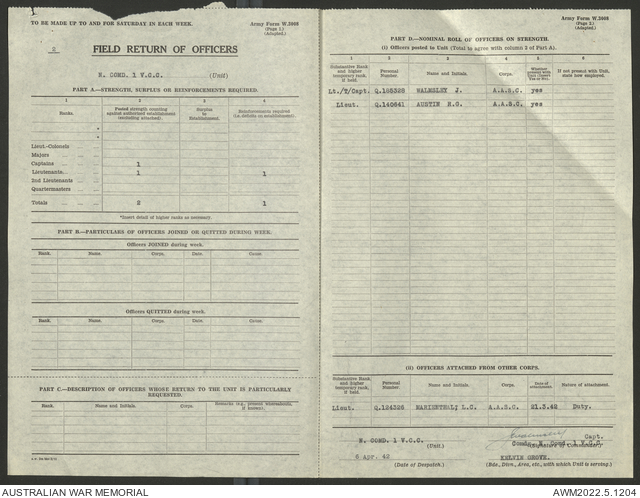 TO BE MADE UP TO AND FOR SATURDAY IN EACH WEEK.
Army Form W.3008
(Page 1.)
(Adapted.)
2
FIELD RETURN OF OFFICERS
N. COMD. 1 V.C.C. (Unit)
PART A.—STRENGTH, SURPLUS OR REINFORCEMENTS REQUIRED.
1 2 3 4
Ranks. Posted strength counting against authorised establishment (excluding attached). Surplus to Establishment. Reinforcements required (i.e. deficit on establishment).
*
*
Lieut.-Colonels
Majors
Captains 1
Lieutenants 1 1
2nd Lieutenants
Quartermasters
Totals 2 1
*Insert detail of higher ranks as necessary.
PART B.—PARTICULARS OF OFFICERS JOINED OR QUITTED DURING WEEK.
Officers JOINED during week.
Rank. Name. Corps. Date. Cause.
Officers QUITTED during week.
Rank. Name. Corps. Date. Cause.
PART C.—DESCRIPTION OF OFFICERS WHOSE RETURN TO THE UNIT IS PARTICULARLY
REQUESTED.
Rank. Name and Initials. Corps. Remarks (e.g., present whereabouts, if known).
Army Form W.3008
(Page 2.)
(Adapted.)
PART D.—NOMINAL ROLL OF OFFICERS ON STRENGTH.
(i) Officers posted to Unit (Total to agree with column 2 of Part A).
1 2 3 4 5 6
Substantive Rank and higher temporary rank, if held. Personal Number. Name and Initials. Corps. Whether present with Unit (Insert Yes or No). If not present with Unit, state how employed.
Lt./T/Capt. Q.185328 WALMSLEY J. A.A.S.C. yes
Lieut. Q.140641 AUSTIN R.G. A.A.S.C. yes
(ii) OFFICERS ATTACHED FROM OTHER CORPS.
Substantive Rank and higher temporary rank, if held. Personal Number. Name and Initials. Corps. Date of attachment. Nature of attachment.
Lieut. Q.124326 MARIENTHAL; L.C. A.A.S.C. 21.3.42 Duty.
N. COMD. 1 V.C.C. (Unit.)
Capt.
Comdg. N. Comd. 1 V.C.C.
(Signature of Commander)
6 Apr. 42 (Date of Despatch.)
KELVIN GROVE.
(Bde., Divn., Area, etc., with which Unit is serving.)
AUSTRALIAN WAR MEMORIAL
AWM2022.5.1204